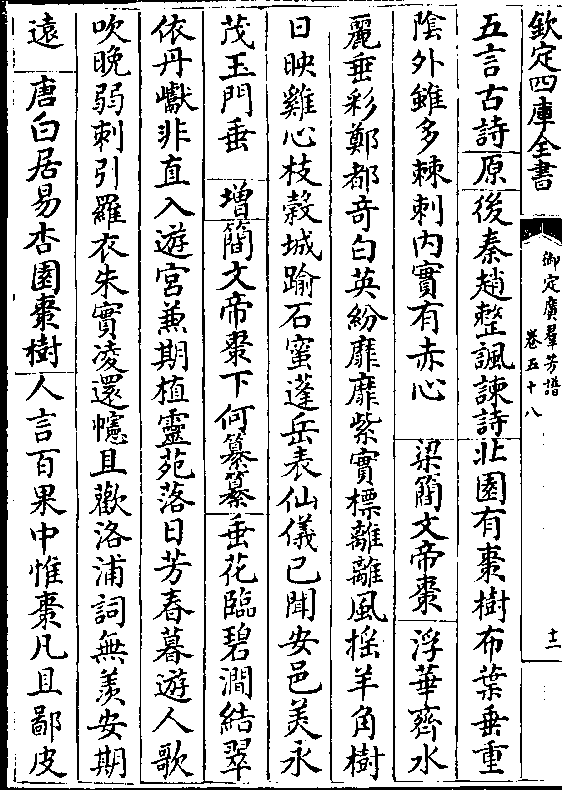 欽定四庫全書
御定廣羣芳譜
卷五十八
十二
五言古詩原後秦趙整諷諫詩北園有棗樹布葉垂重
陰外雖多棘刺內實有赤心　梁簡文帝棗　浮華齊水
麗垂彩鄭都奇白英紛靡靡紫實標離離風揺羊角樹
日映雞心枝穀城踰石蜜蓬岳表仙儀已聞安邑美永
茂玉門垂　增簡文帝棗下何纂纂垂花臨碧澗結翠
依丹巘非直入遊宮兼期植靈苑落日芳春暮遊人歌
吹晚弱刺引羅衣朱實凌還幰且歡洛浦詞無羨安期
遠　唐白居易杏園棗樹人言百果中惟棗凡且鄙皮